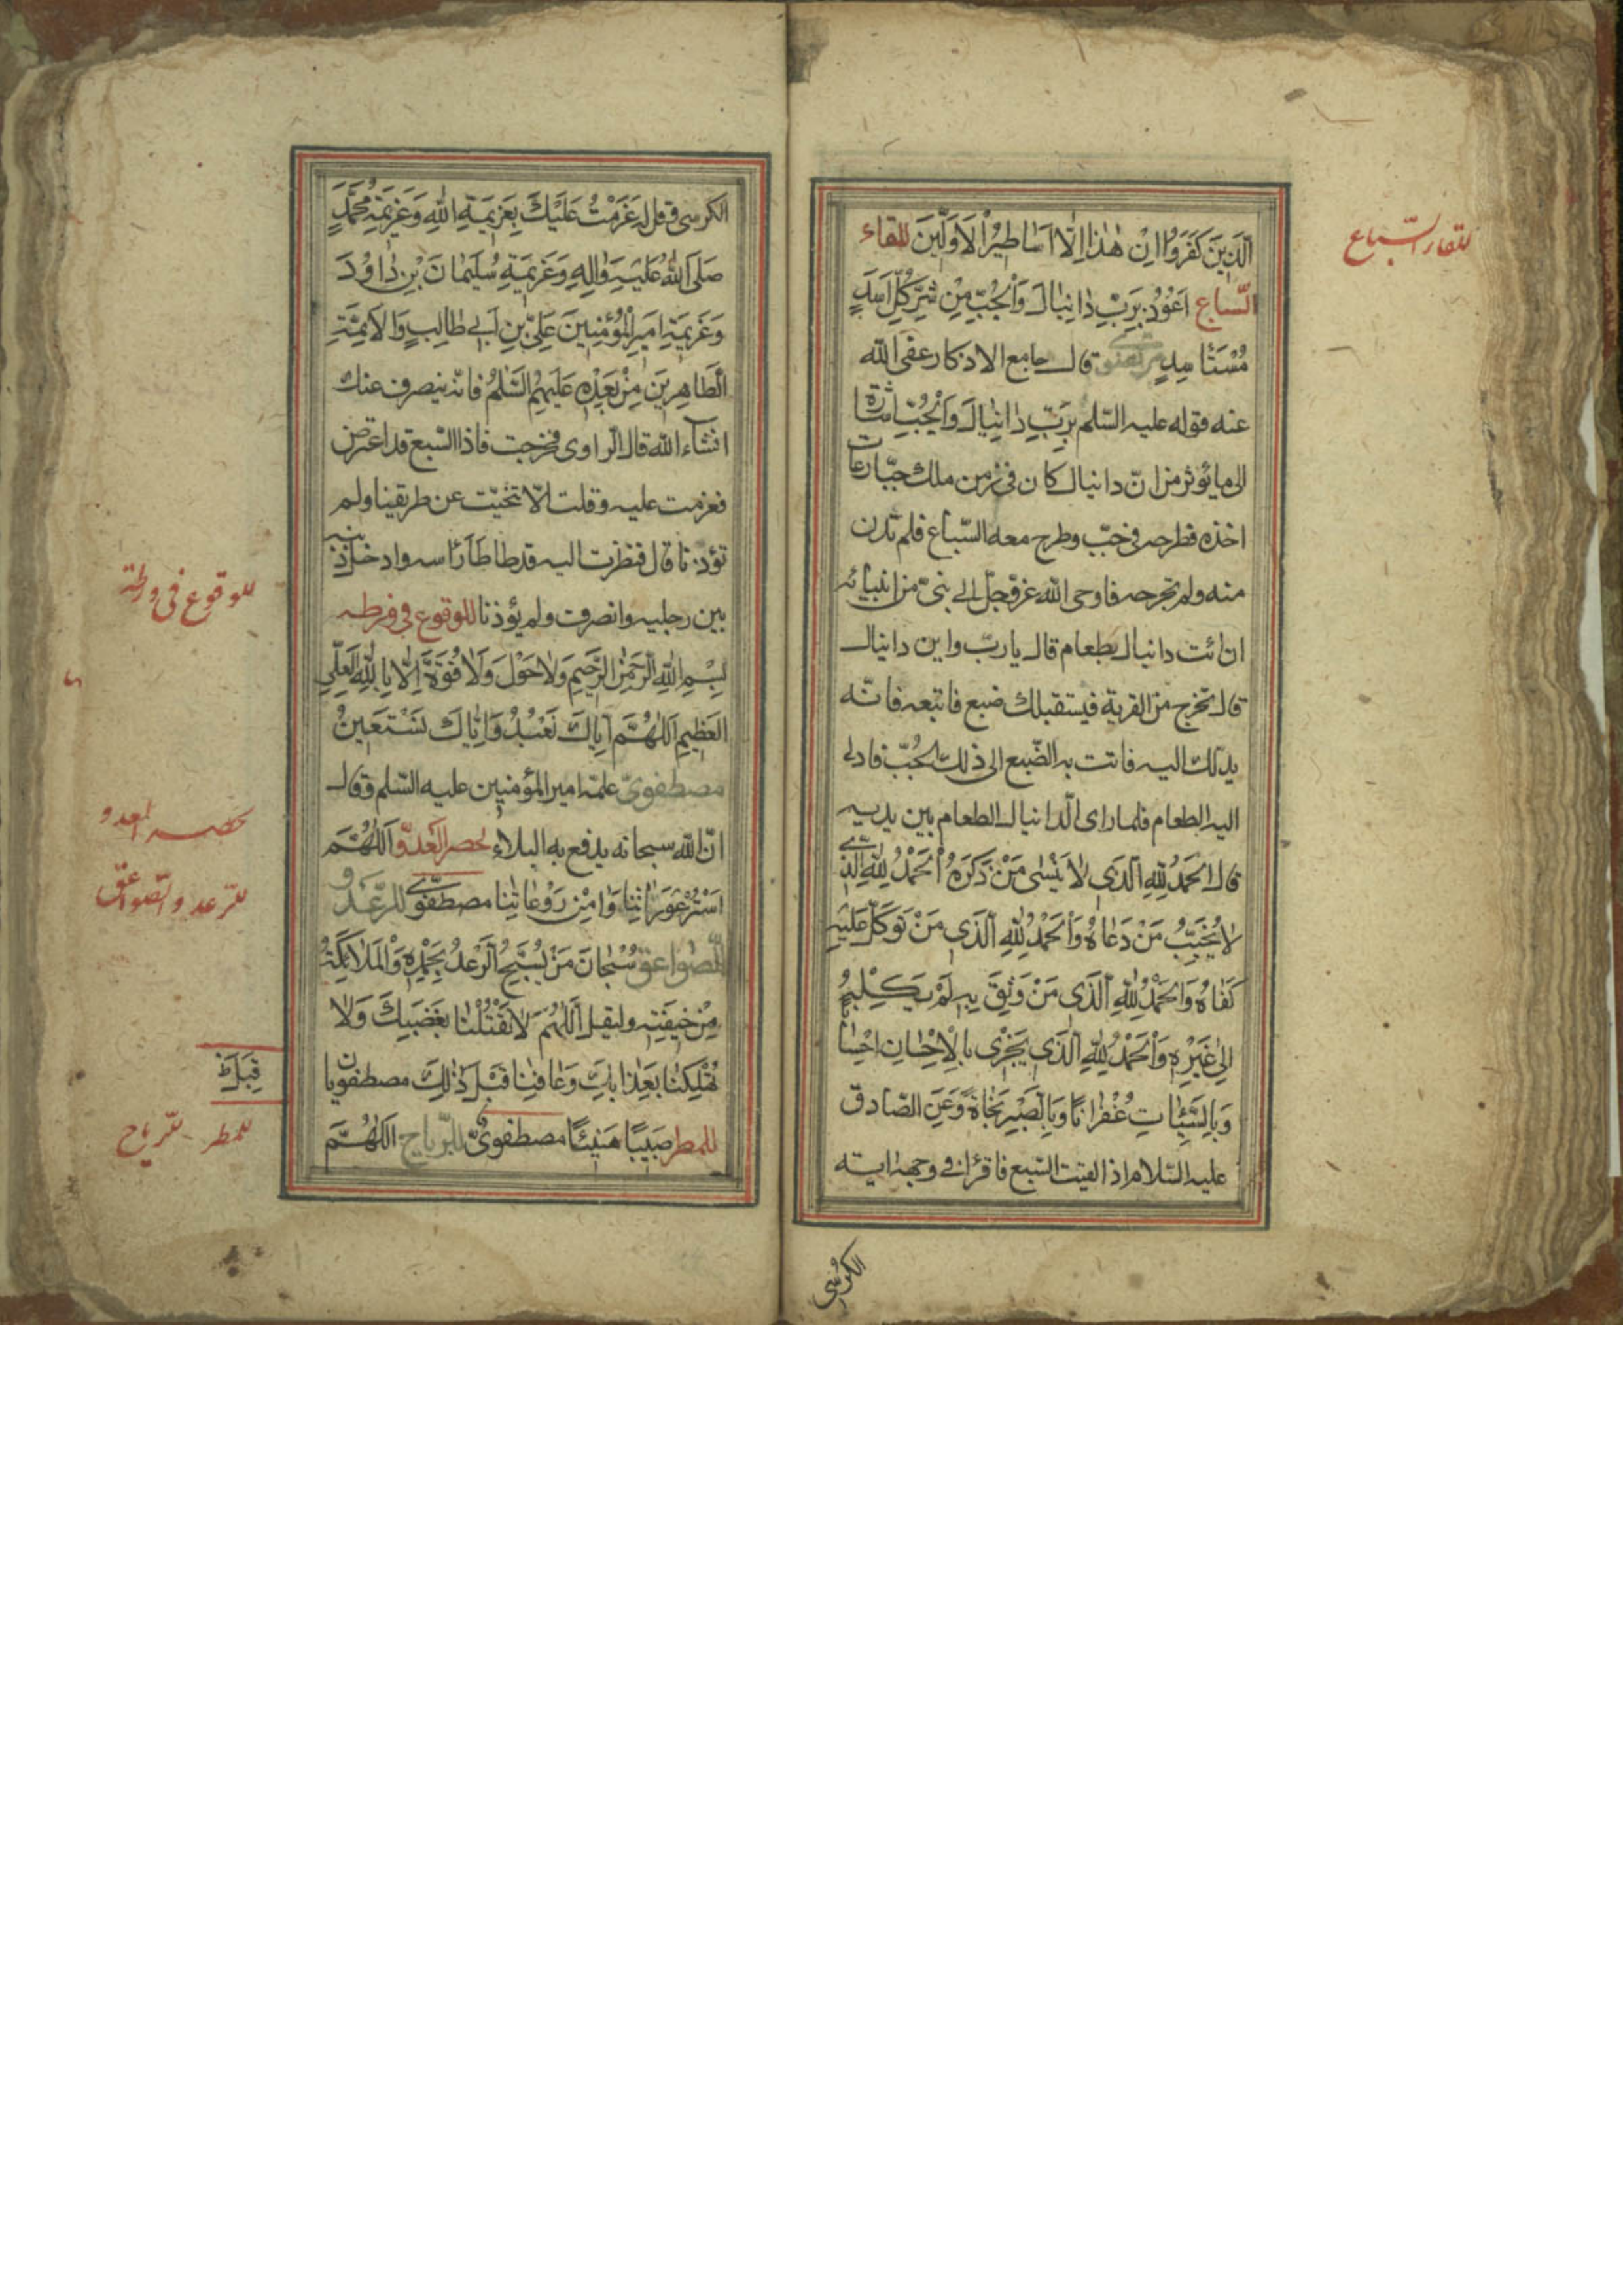 للقاء السّباع
الَّذِينَ كَفَرُوا اِنْ هٰذا اِلَّا اَسٰاطِيرُ الْاَوَّلِينَ للقاء
السّباع اَعُوذُ بِرَبِّ دٰانِيٰالَ وَالْجُبِّ مِنْ شَرِّ كُلِّ اَسَدٍ
مُسْتَأْسِدٍ قال جامع الاذكار عفى الله
عنه قوله عليه السّلم بِرَبِّ دٰانِيٰالَ وَالْجُبِّ اشارة
الى ما يؤثر من انّ دانيال كان فى زمن ملك جبّار عات
اخذه فطرحه فى جبّ وطرح معه السّباع فلم تدن
منه ولم تجرحه فاوحى الله عزّوجلّ الى نبىّ من انبيائه
ان ائت دانيال بطعام قال يا ربّ واين دانيال
قال تخرج من القرية فيستقبلك ضبع فاتبعه فانّه
يدلك اليه فاتت به الضّبع الى ذلك الجبّ فادلى
اليه الطعام فلما راى الدانيال الطعام بين يديه
قال اَلْحَمْدُ لِلّٰهِ الَّذِى لٰا يَنْسٰى مَنْ ذَكَرَهُ اَلْحَمْدُ لِلّٰهِ الَّذِى
لٰا يُخَيِّبُ مَنْ دَعٰاهُ وَالْحَمْدُ لِلّٰهِ الَّذِى مَنْ تَوَكَّلَ عَلَيْهِ
كَفٰاهُ وَالْحَمْدُ لِلّٰهِ الَّذِى مَنْ وَثِقَ بِهِ لَمْ يَكِلْهُ
اِلىٰ غَيْرِهِ وَالْحَمْدُ لِلّٰهِ الَّذِى يَجْزِى بِالْاِحْسٰانِ اِحْسٰانًا
وَبِالسَّيِّئٰاتِ غُفْرٰانًا وَبِالصَّبْرِ نَجٰاةً وَعَنِ الصّادق
عليه السّلام اذا لقيت السّبع فاقرأ فى وجهه اية
الكرسى
الكرسى وقل له عَزَمْتُ عَلَيْكَ بِعَزِيمَةِ اللّٰهِ وَعَزِيمَةِ مُحَمَّدٍ
صَلَّى اللّٰهُ عَلَيْهِ وَاٰلِهِ وَعَزِيمَةِ سُلَيْمٰانَ بْنِ دٰاوُدَ
وَعَزِيمَةِ اَمِيرِ الْمُؤْمِنِينَ عَلِىِّ بْنِ اَبِى طٰالِبٍ وَالْاَئِمَّةِ
الطّٰاهِرِينَ مِنْ بَعْدِهِ عَلَيْهِمُ السَّلٰمُ فانّه ينصرف عنك
انشآء الله قال الرّاوى فخرجت فاذا السّبع قد اعترض
فعزمت عليه وقلت الّا تنحّيت عن طريقنا ولم
تؤذنا قال فنظرت اليه قد طأطأ رأسه وادخل ذنبه
بين رجليه وانصرف ولم يؤذنا للوقوع فى ورطه
للوقوع فى ورطة
بِسْمِ اللّٰهِ الرَّحْمٰنِ الرَّحِيمِ وَلٰا حَوْلَ وَلٰا قُوَّةَ اِلّٰا بِاللّٰهِ الْعَلِىِّ
الْعَظِيمِ اَللّٰهُمَّ اِيّٰاكَ نَعْبُدُ وَاِيّٰاكَ نَسْتَعِينُ
مصطفوىّ علمه امير المؤمنين عليه السّلم وقال
انّ الله سبحانه يدفع به البلاء لحصر العَدوّ اَللّٰهُمَّ
لحصر العدو
اسْتُرْ عَوْرٰاتِنٰا وَاٰمِنْ رَوْعٰاتِنٰا مصطفوىّ للرّعد و
للرّعد والصّواعق
الصّواعق سُبْحٰانَ مَنْ يُسَبِّحُ الرَّعْدُ بِحَمْدِهِ وَالْمَلٰائِكَةُ
مِنْ خِيفَتِهِ وليقل اَللّٰهُمَّ لٰا تَقْتُلْنٰا بِغَضَبِكَ وَلٰا
تُهْلِكْنٰا بِعَذٰابِكَ وَعٰافِنٰا قَبْلَ ذٰلِكَ مصطفويان
للمطر صَيِّبًا هَنِيئًا مصطفوىّ للرّياح اَللّٰهُمَّ
للمطر للرّياح